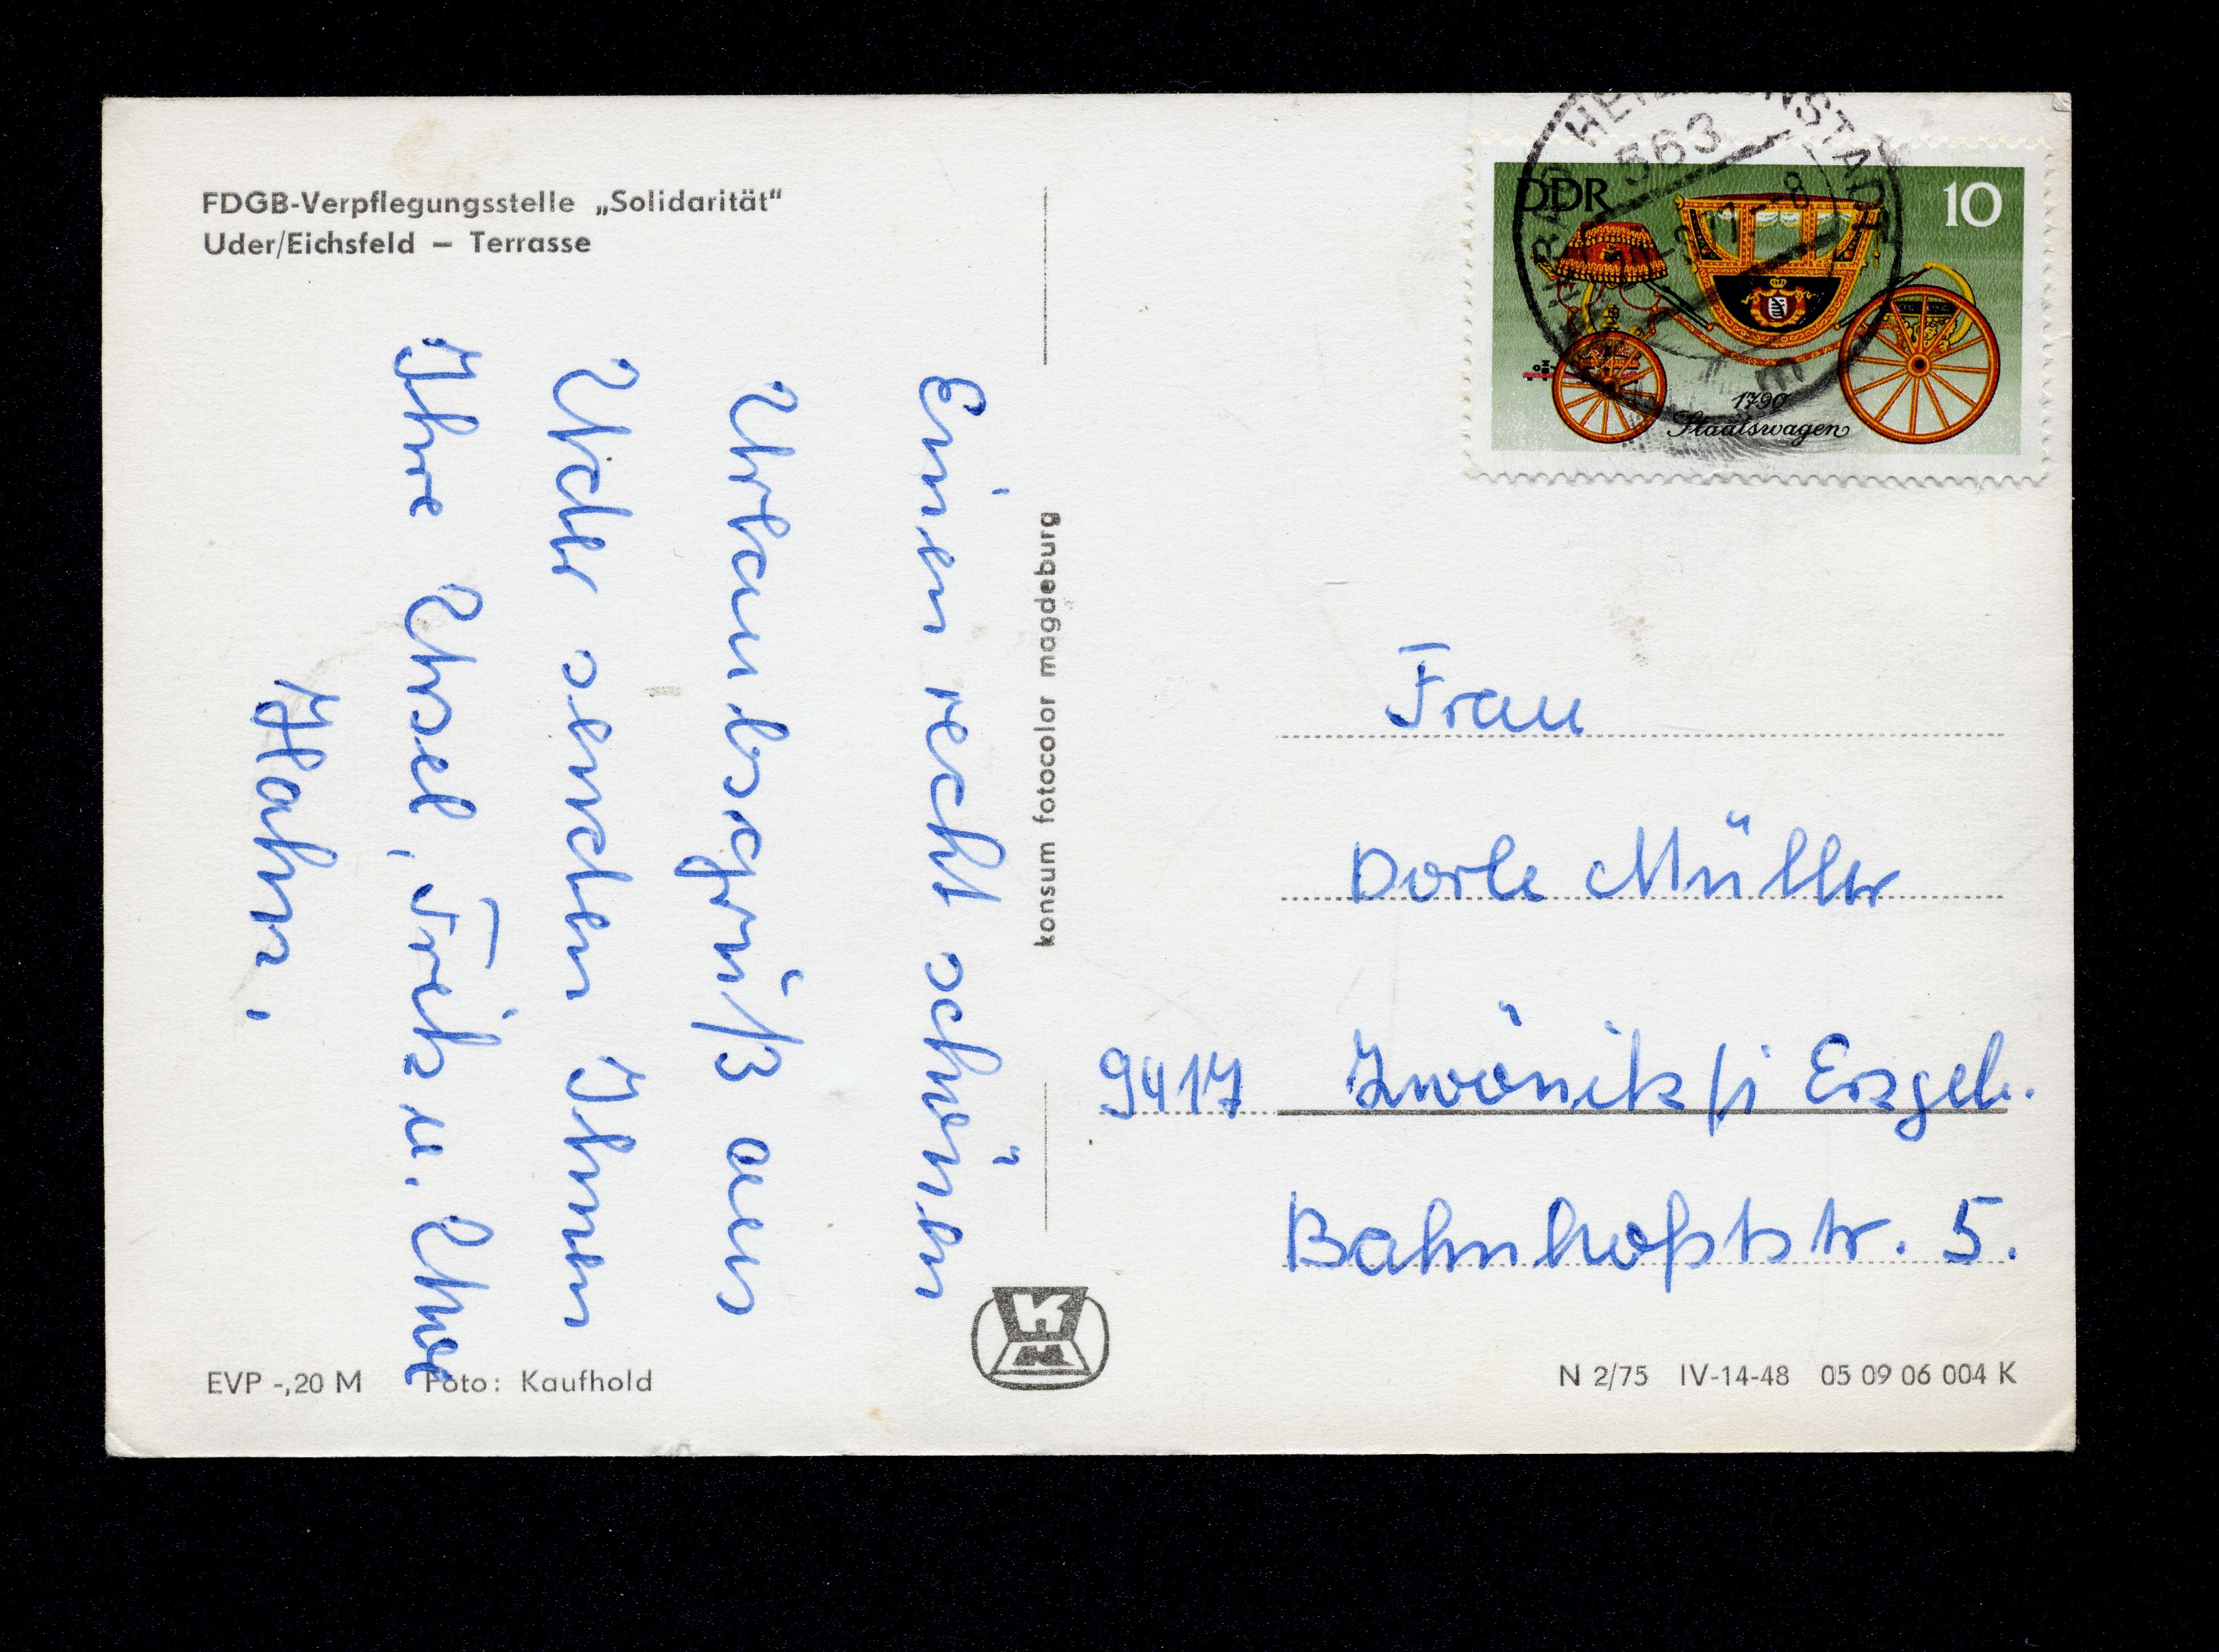 FDGB-Verpflegungsstelle „Solidarität"
Uder/Eichsfeld – Terrasse
Einen recht schönen
Urlaubsgruß aus
Uder senden Ihnen
Ihre Ursel, Fritz u. Uwe
Hahn.
EVP -,20 M Foto: Kaufhold
konsum fotocolor magdeburg
DDR
10
1790
Staatswagen
HEILIGENSTADT
563
Frau
Dorle Müller
9417 Zwönitz/i Erzgeb.
Bahnhofstr. 5.
N 2/75 IV-14-48 05 09 06 004 K